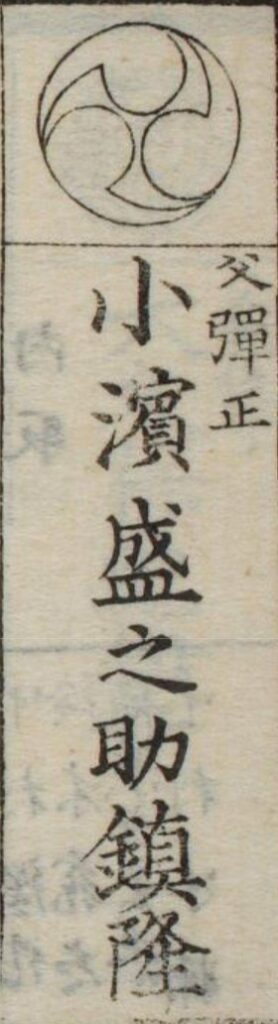 父彈正
小濱盛之助鎮隆